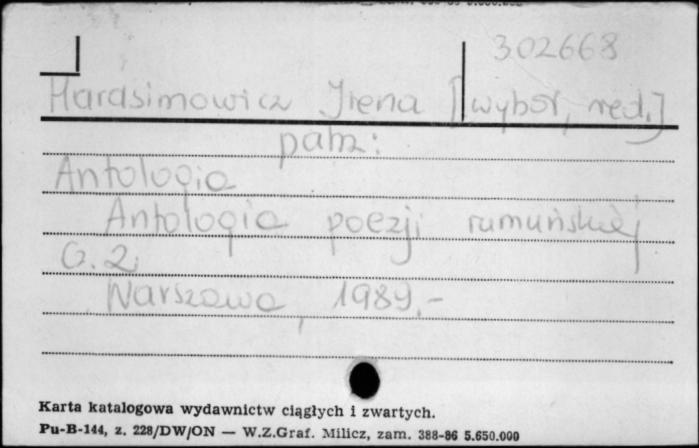 302668
Harasimowicz Irena [wybór, red.]
patrz:
Antologia
Antologia poezji rumuńskiej
G. 2
Warszawa, 1989.-
Karta katalogowa wydawnictw ciągłych i zwartych.
Pu-B-144, z. 228/DW/ON — W.Z.Graf. Milicz, zam. 388-86 5.650.000